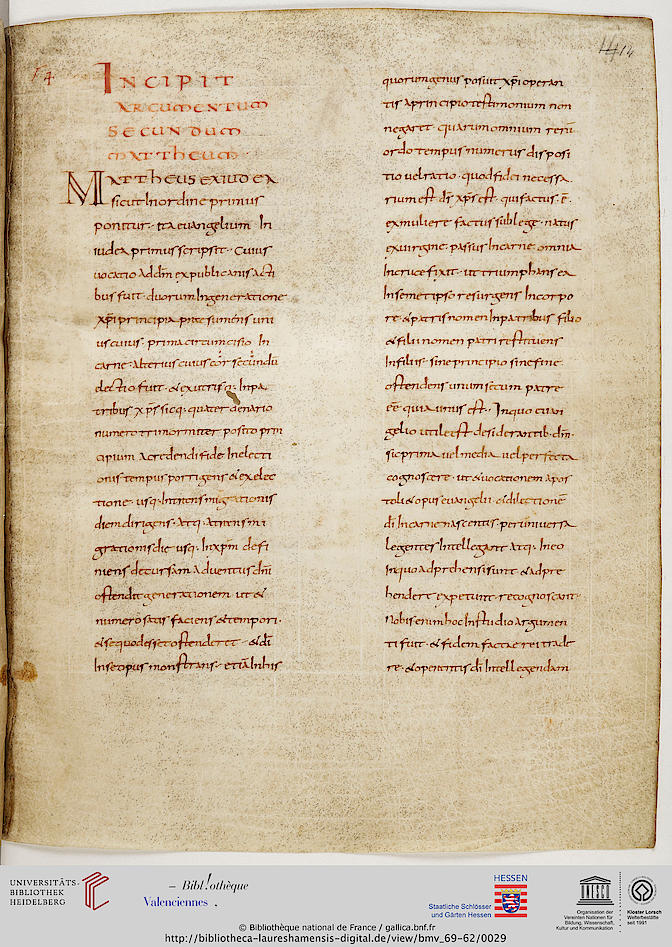 INCIPIT
ARGUMENTUM
SECUNDUM
MATTHEUM
MATTHEUS EX IUDEA
sicut In ordine primus
ponitur· ita euangelium In
iudea primus scripsit· Cuius
uocatio ad dm̄ ex publicanis acti
bus fuit· duorum In generatione
xp̄i principia praesumens uni
us cuius· prima circumcisio In
carne· alterius cuius cor secundū
electio fuit· & ex utrisq· In pa
tribus xp̄s sicq· quater denario
numero triformiter posito prin
cipium a credendi fide In electi
onis tempus porrigens & ex elec
tione usq· In transmigrationis
diem dirigens· atq· a transmi
grationis die usq· In xp̄m defi
niens decursam aduentus dn̄i
ostendit generationem ut &
numero satisfaciens & tempori·
& se quod esset ostenderet· & dī
In se opus monstrans· etiā In his
quorum genus posuit xp̄i operan
tis a principio testimonium non
negaret quarum omnium rerū
ordo tempus numerus disposi
tio uel ratio· quod fidei necessa
rium est ds̄ xp̄s est· qui factus ē·
ex muliere factus sub lege· natus
ex uirgine passus In carne omnia
In cruce fixit· ut triumphans ea
In semetipso resurgens In corpo
re & patris nomen In patribus filio
& filii nomen patri restituens
In filiis· sine principio sine fine·
ostendens unum se cum patre
eē quia unus est· In quo euan
gelio utile est desiderantib· dm̄·
sic prima uel media uel perfecta
cognoscere· ut & uocationem apos
toli & opus euangelii & dilectionē
dī In carne nascentis per uniuersa
legentes Intellegant atq· In eo
In quo adprehensi sunt & adpre
hendere expetunt· recognoscant·
Nobis enim hoc In studio argumen
ti fuit· & fidem factae rei trade
re· & operantis dī Intellegendam
UNIVERSITÄTS-
BIBLIOTHEK
HEIDELBERG
Bibliothèque
Valenciennes
Staatliche Schlösser
und Gärten Hessen
HESSEN
UNESCO
Organisation der
Vereinten Nationen für
Bildung, Wissenschaft,
Kultur und Kommunikation
Kloster Lorsch
Welterbestätte
seit 1991
© Bibliothèque national de France / gallica.bnf.fr
http://bibliotheca-laureshamensis-digital.de/view/bmv_69-62/0029